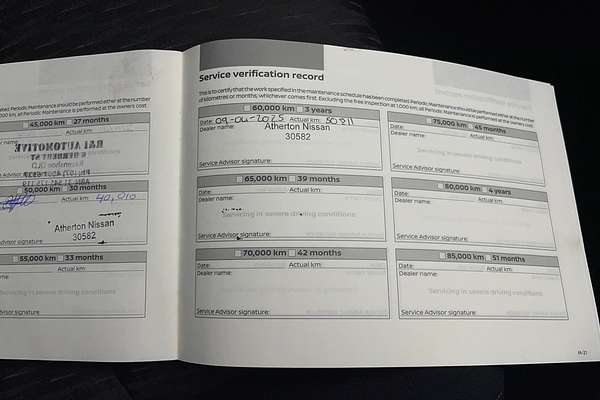 pleted. Periodic Maintenance should be performed either at the number
000 km, all Periodic Maintenance is performed at the owners cost
45,000 km 27 months
Actual km:
RAI AUTOMOTIVE
Service Advisor signature:
50,000 km 30 months
Actual km: 40,010
Atherton Nissan
30582
Advisor signature:
55,000 km 33 months
Actual km:
Servicing in severe driving conditions
Service Advisor signature:
Service verification record
This is to certify that the work specified in the maintenance schedule has been completed. Periodic Maintenance should be performed either at the number
of kilometres or months, whichever comes first. Excluding the free inspection at 1,000 km, all Periodic Maintenance is performed at the owners cost
60,000 km 3 years
Date: 09-04-2025 Actual km: 50811
Dealer name: Atherton Nissan
30582
Service Advisor signature:
65,000 km 39 months
Date: Actual km:
Dealer name:
Servicing in severe driving conditions
Service Advisor signature:
70,000 km 42 months
Date: Actual km:
Dealer name:
Servicing in severe driving conditions
Service Advisor signature:
75,000 km 45 months
Date: Actual km:
Dealer name:
Servicing in severe driving conditions
Service Advisor signature:
80,000 km 4 years
Date: Actual km:
Dealer name:
Service Advisor signature:
85,000 km 51 months
Date: Actual km:
Dealer name:
Servicing in severe driving conditions
Service Advisor signature: